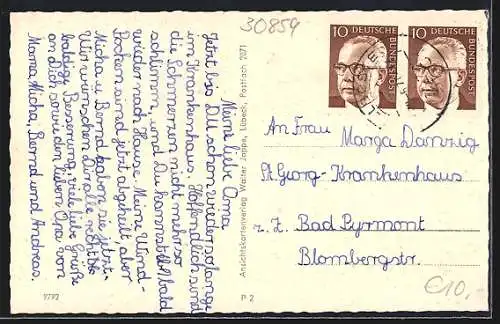 30859
10 DEUTSCHE BUNDESPOST
10 DEUTSCHE BUNDESPOST
Meine liebe Oma
Jetzt bist Du schon wieder so lange
im Krankenhaus. Hoffendlich sind
die Schmerzen nicht mehr so
schlimm, und Du kannst bald
wieder nach Hause. Meine Wind-
Pocken sind jetzt abgeheilt, aber
Micha u. Bernd haben sie jetzt.
Wir wünschen Dir alle recht bal
baldige Besserung, viele liebe Grüße
an Dich sowie den lieben Opa von
Mama, Micha, Bernd und Andreas.
Ansichtskartenverlag Walter Jappe, Lübeck, Postfach 2071
An Frau Marga Danzig
St. Georg-Krankenhaus
z. Z. Bad Pyrmont
Blombergstr.
9792
P 2
€10,-